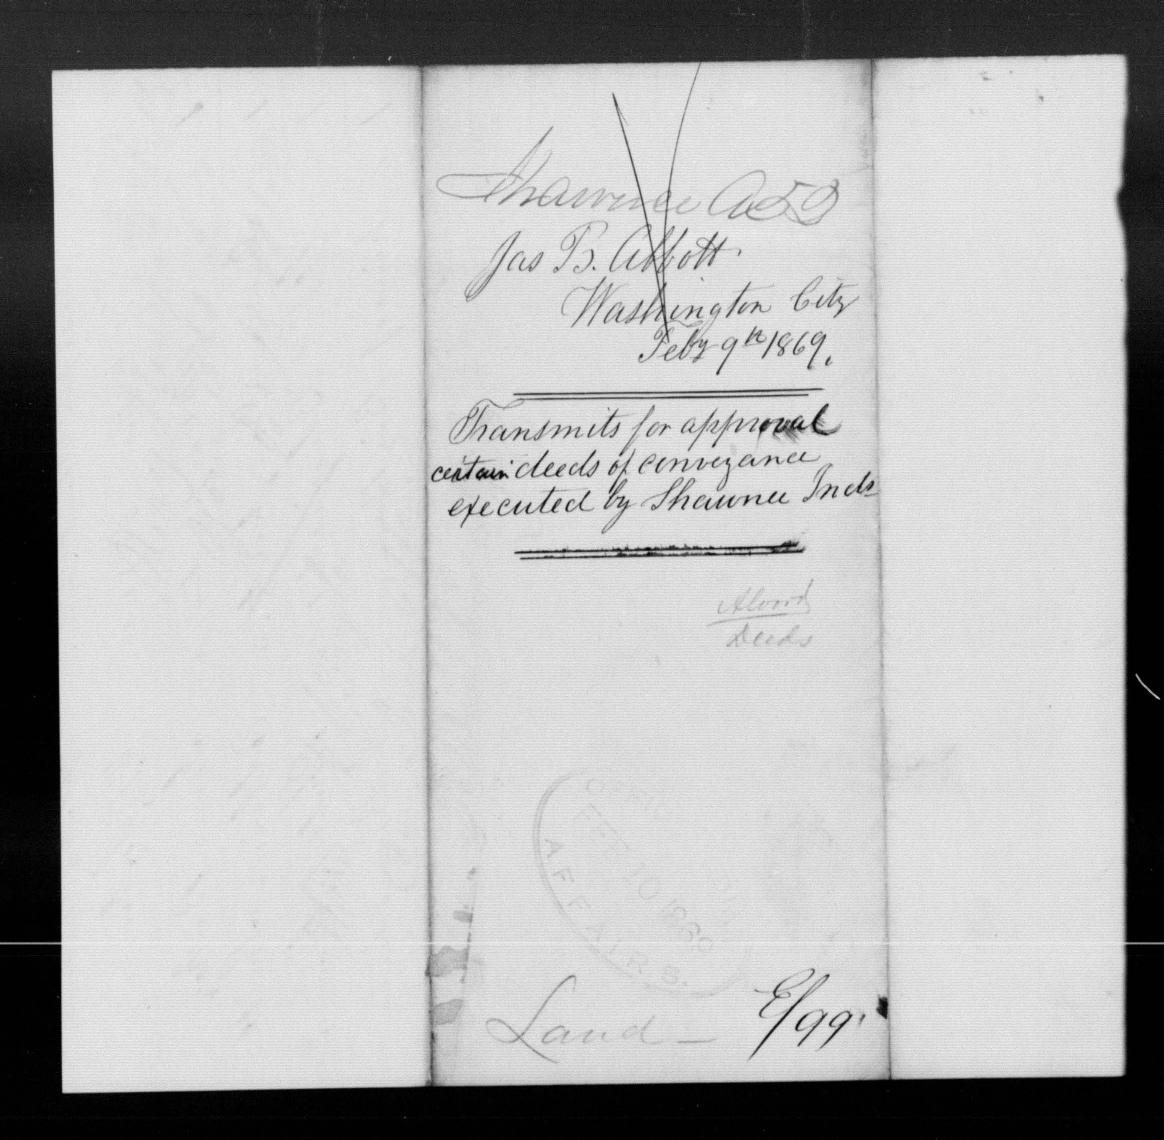 Shawnee A 59
Jas B. Abbott.
Washington City
Feby 9th 1869.
Transmits for approval
certain deeds of conveyance
executed by Shawnee Inds
Deeds
OFFICE
FEB 10 1869
AFFAIRS.
Land —
E/99.